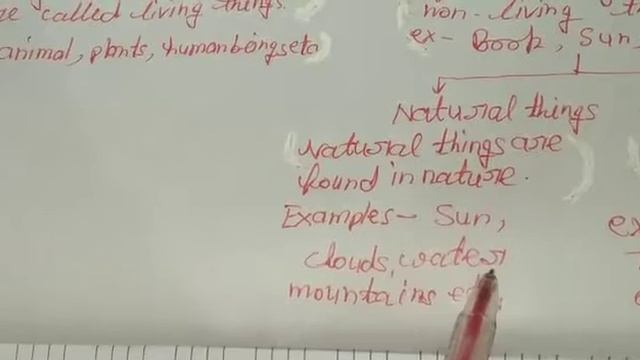 called living things.
animal, plants, human beings etc
non-living
ex- Book, Sun
Natural things
Natural things are
found in nature.
Examples- Sun,
clouds, water
mountains
ex